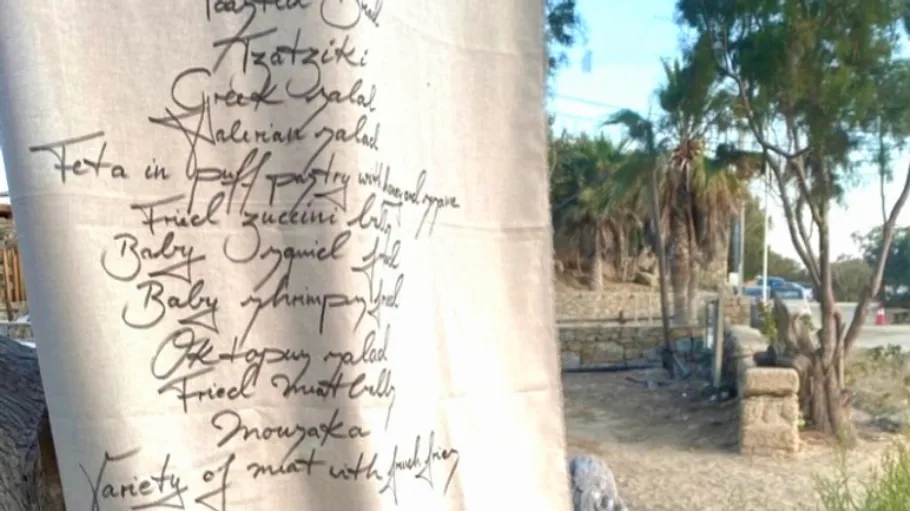 Toasted Bred
Tzatziki
Greek salad
Valerian salad
Feta in puff pastry with honey and sesame
Fried zuccini bolls
Baby Squied fried
Baby shrimps fried
Oktopus salad
Fried meatbolls
Mousaka
Variety of meat with french fries